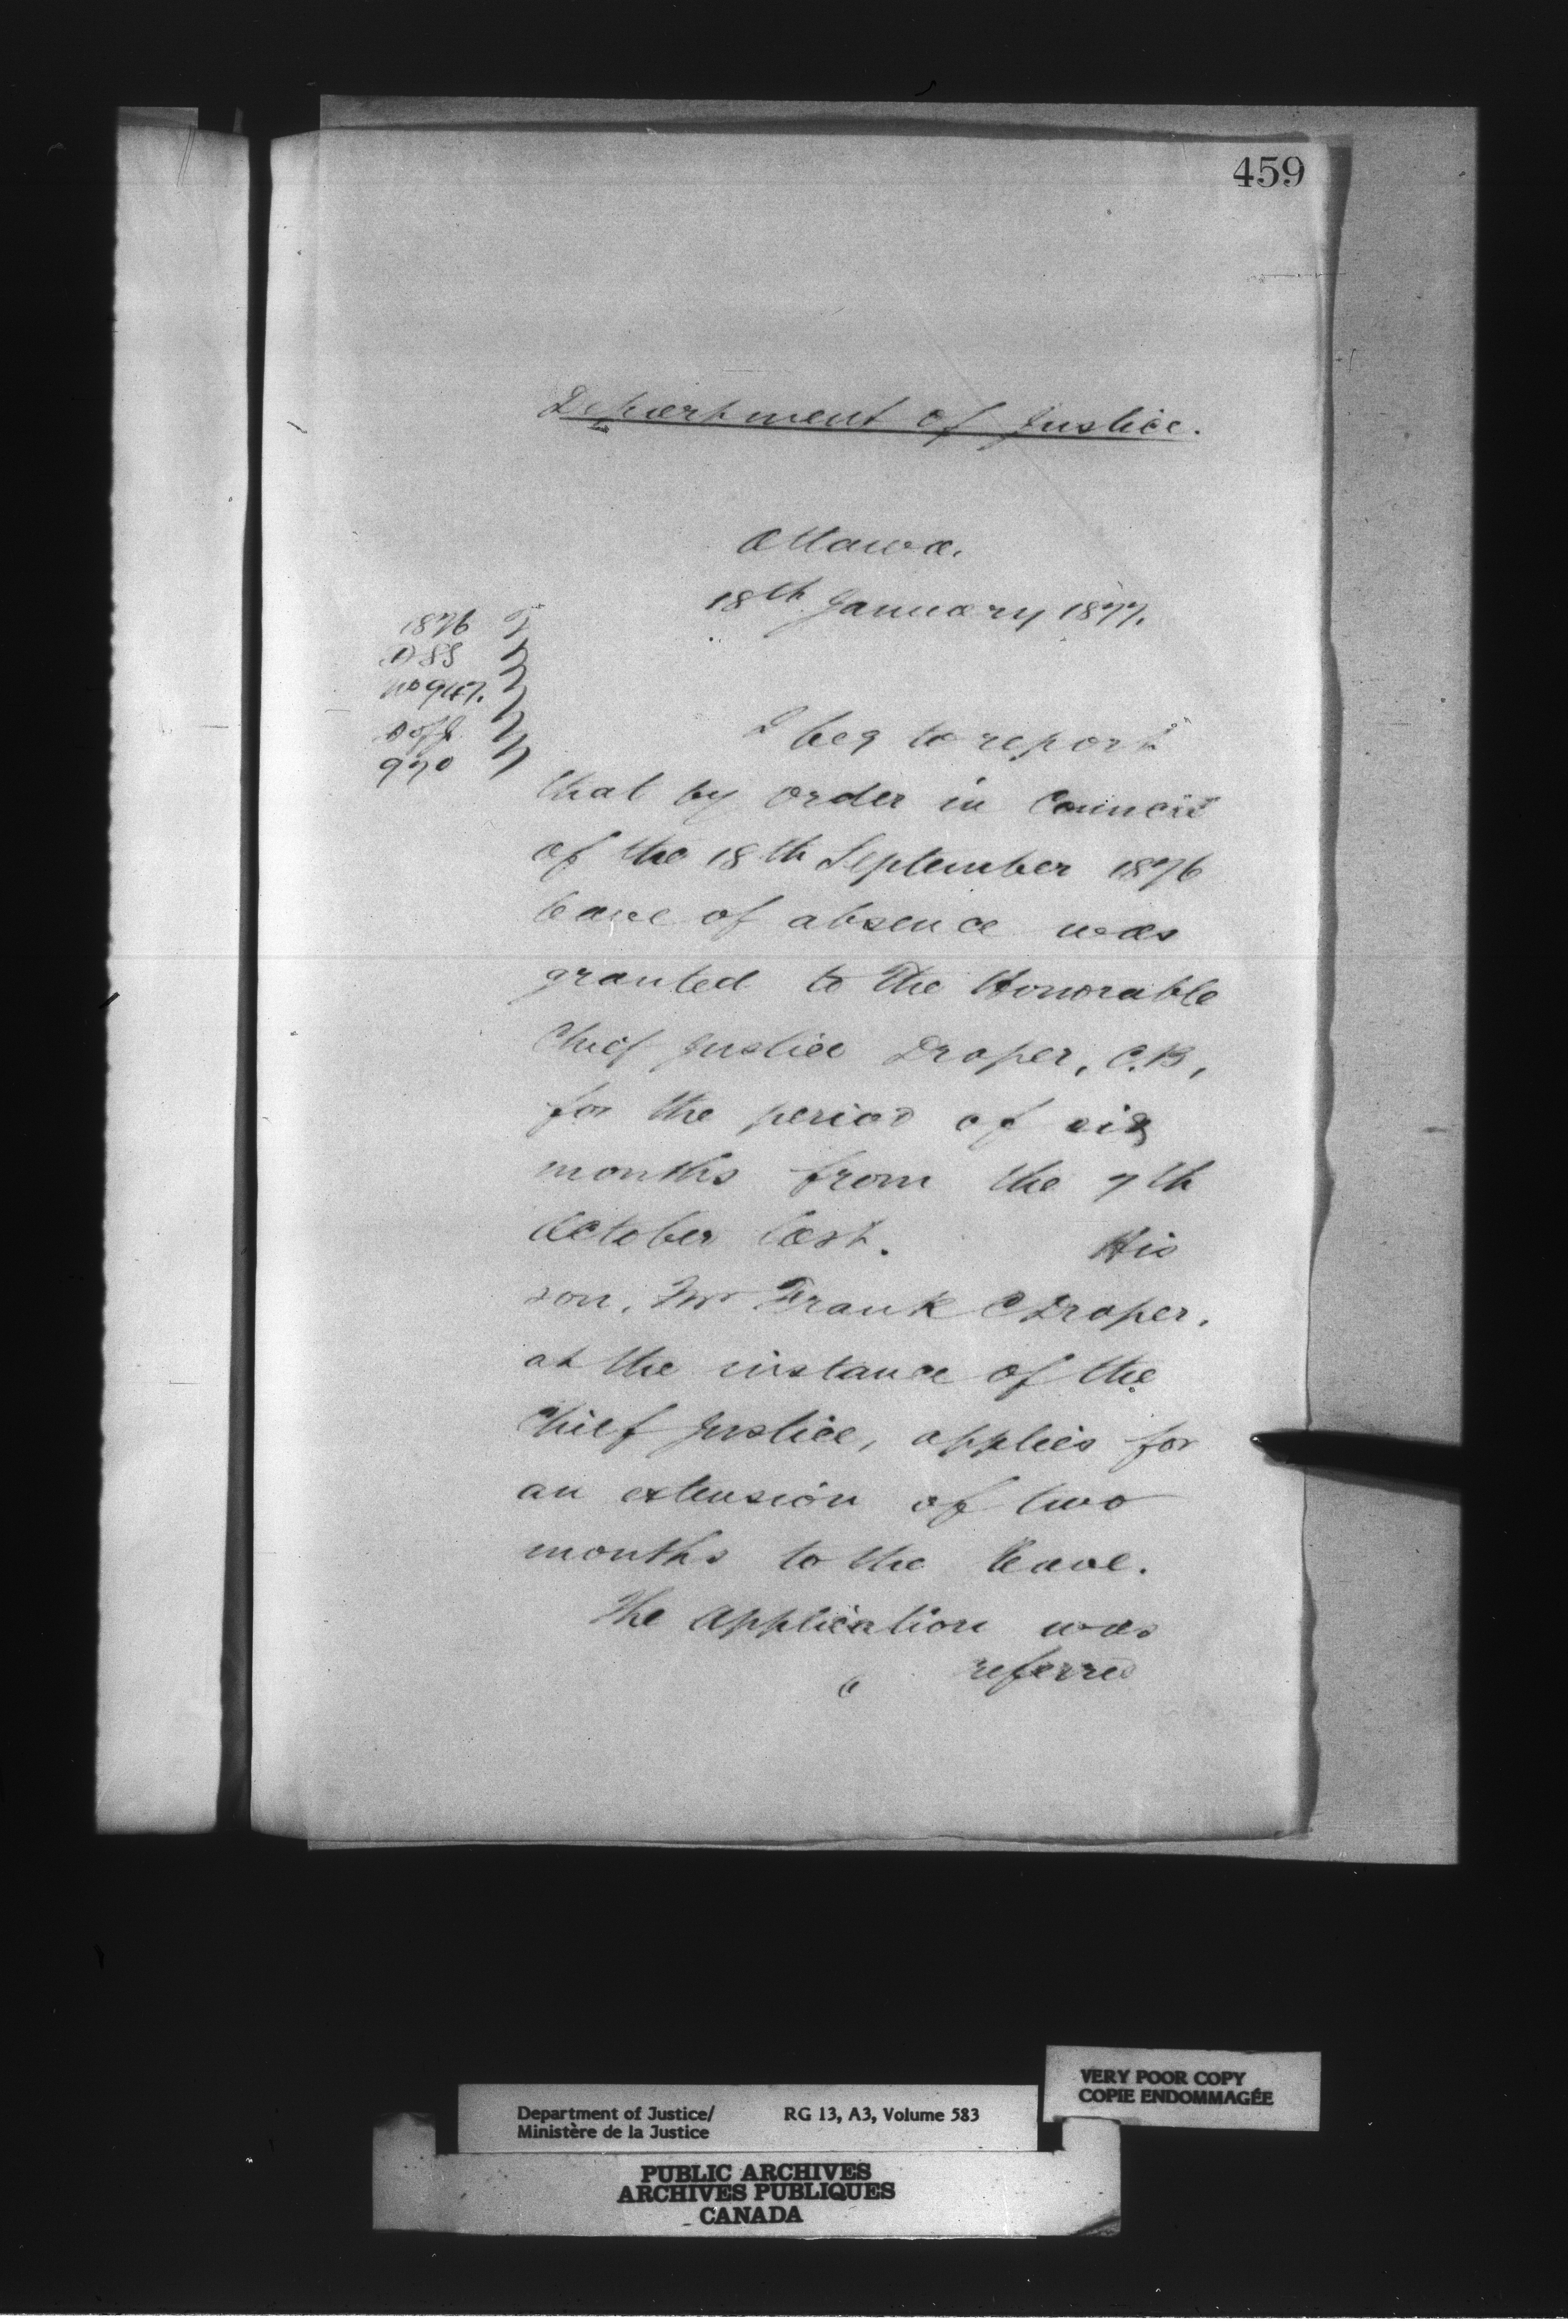 459
Department of Justice.
Ottawa.
18th January 1877.
1876
D SS
No 947.
D of J
970
I beg to report
that by order in Council
of the 18th September 1876
leave of absence was
granted to the Honorable
Chief Justice Draper, C.B,
for the period of six
months from the 7th
October last. His
son, Mr Frank C Draper,
at the instance of the
Chief Justice, applies for
an extension of two
months to the leave.
The application was
referred
VERY POOR COPY
COPIE ENDOMMAGÉE
Department of Justice/ RG 13, A3, Volume 583
Ministère de la Justice
PUBLIC ARCHIVES
ARCHIVES PUBLIQUES
CANADA